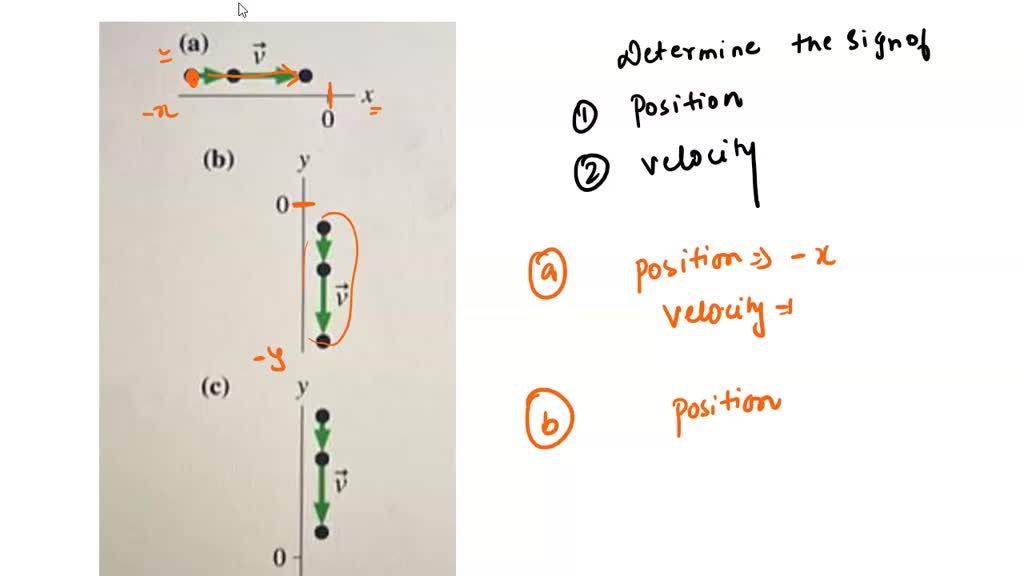 (a)
v
x
-x
0
(b)
y
0
v
-y
(c)
y
v
0
Determine the sign of
① Position
② velocity
ⓐ position ⇒ -x
velocity ⇒
ⓑ position